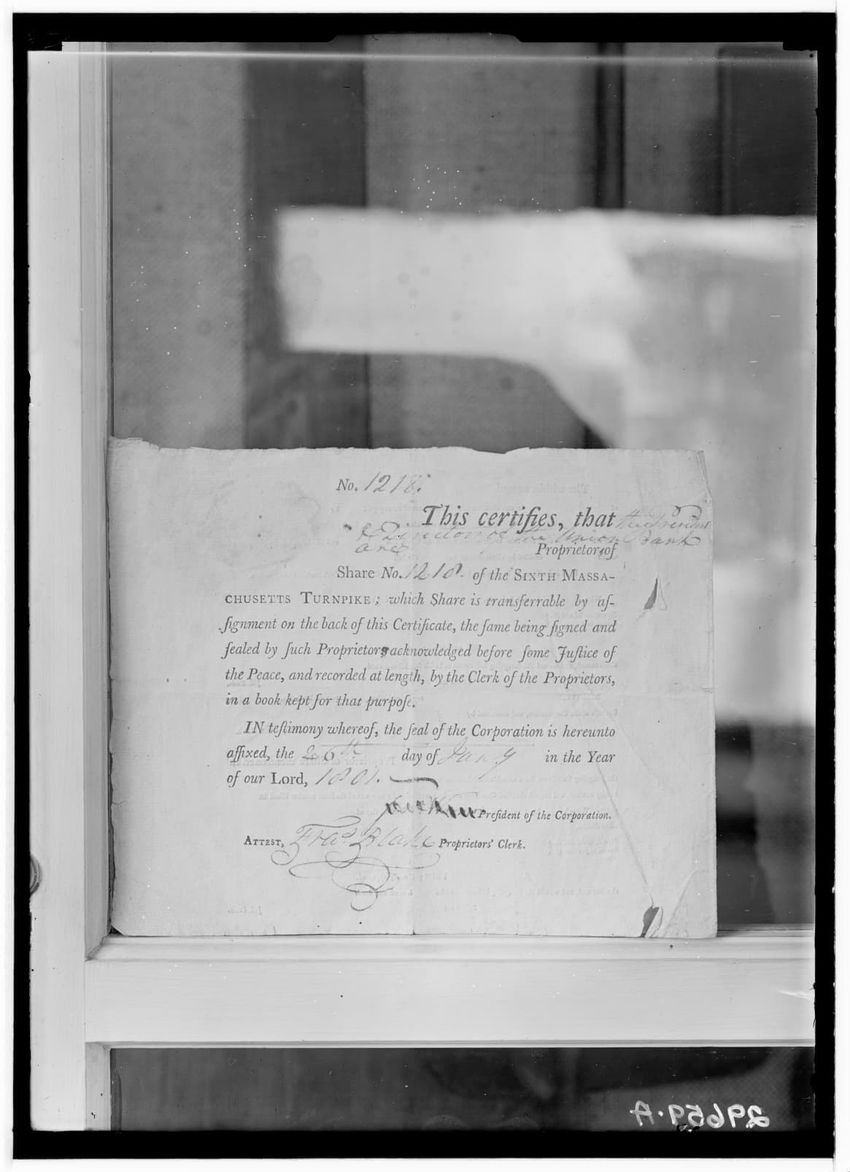 No. 1218.
This certifies, that the Presidt
& Directors of the Union Bank
are Proprietors of
Share No. 1218. of the SIXTH MASSA-
CHUSETTS TURNPIKE; which Share is transferrable by aſ-
ſignment on the back of this Certificate, the ſame being ſigned and
ſealed by ſuch Proprietors acknowledged before ſome Juſtice of
the Peace, and recorded at length, by the Clerk of the Proprietors,
in a book kept for that purpoſe.
IN teſtimony whereof, the ſeal of the Corporation is hereunto
affixed, the 26th day of Jany in the Year
of our Lord, 1801.
Preſident of the Corporation.
ATTEST, Fras Blake Proprietors' Clerk.
29659-A